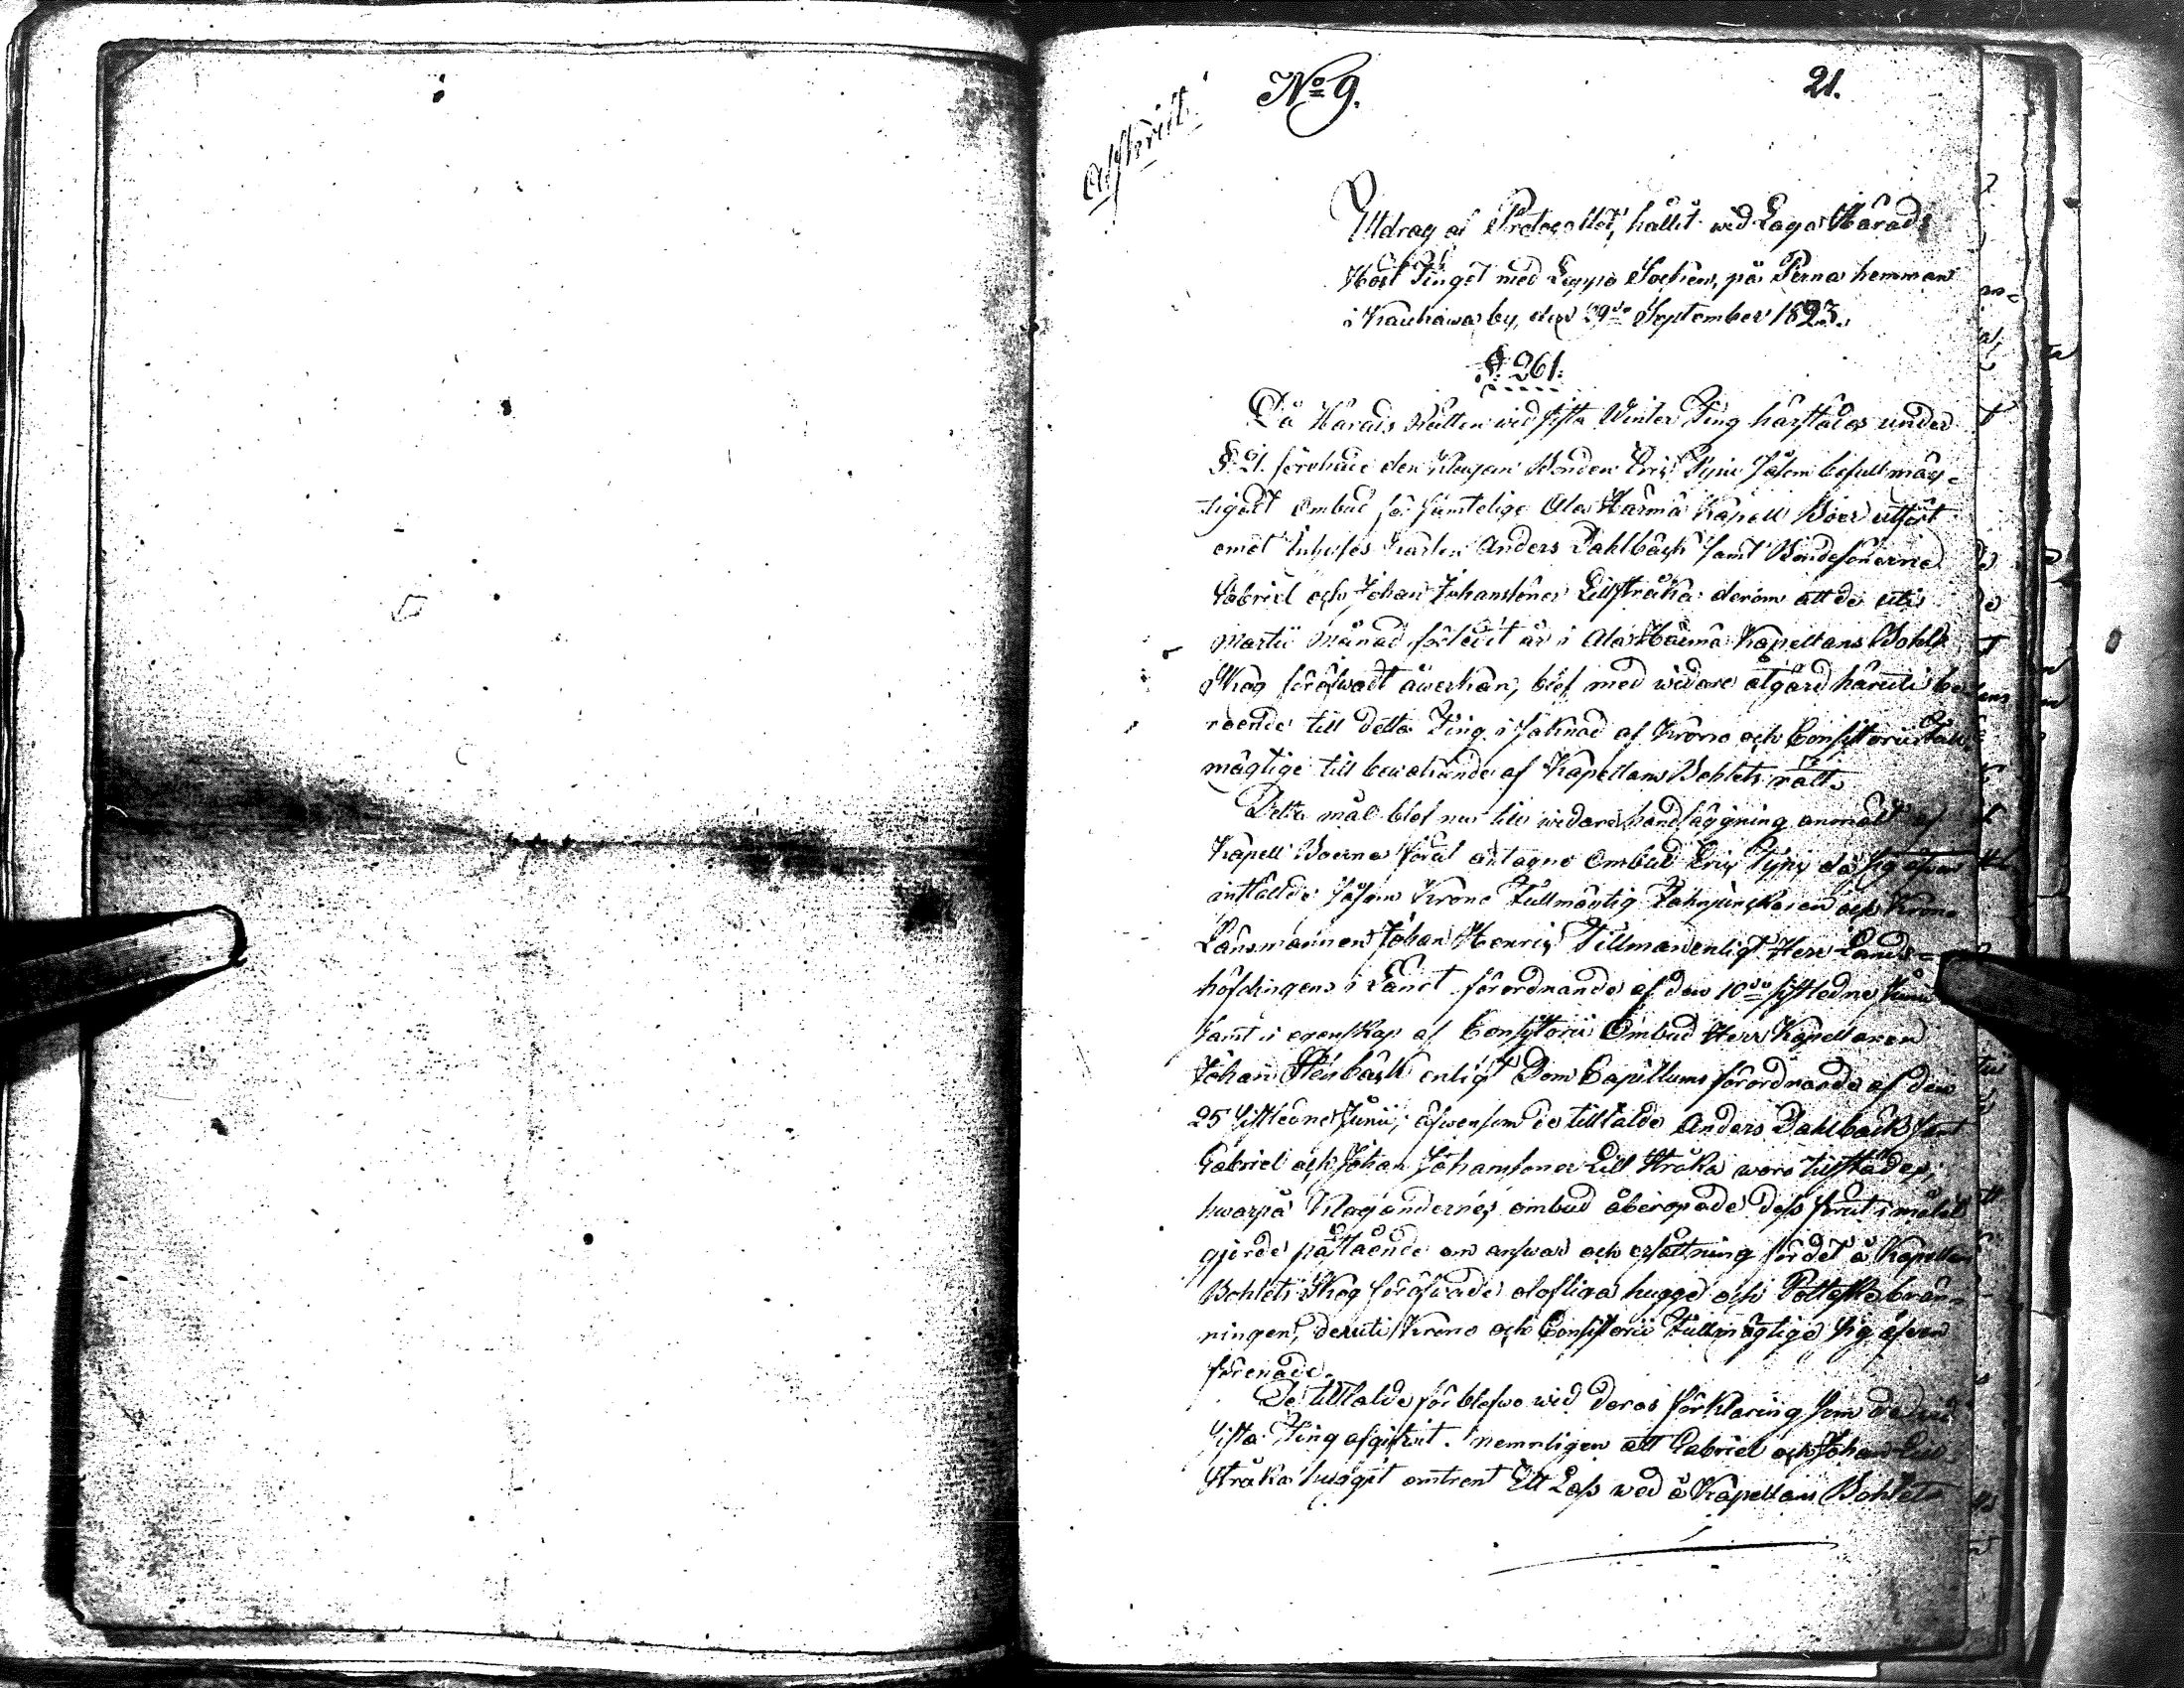 No 9.
21.
Afskrift.
Utdrag af Protocollet, hållit wid Laga Härads
Höst Tinget med Lappo Sochen, på Perna hemman
i Kauhawa by, den 29de September 1823.
§. 261.
Då Härads Rätten wid sista Winter Ting härstädes under
§. 21. förehade den klagan Bonden Eric Pyni såsom befullmäg-
tigadt Ombud för samtelige Ala Härmä Kapell Boer utfört
emot Inhyses Karlen Anders Dahlbäck samt Bondesönerne
Gabriel och Johan Johanssöner Lillstråka derom att de uti
Martii Månad förledit år i Ala Härmä Kapellans Bohls
Skog föröfwadt åwerkan, blef med widare åtgärd häruti be-
roende till detta Ting i saknad af Krono och Consistorii Full-
mägtige till bewakande af Kapellans Bohlets rätt.
Detta mål blef nu till widare handläggning anmält af
Kapell Boernes förut antagne Ombud Eric Pyni, då sig äfwen
inställde såsom Krono Fullmägtig Fahnjunkaren och Krono
Länsmannen Johan Henric Tillman enligt Herr Lands-
höfdingens i Länet förordnande af den 10de sistledne Junii
samt i egenskap af Consistorii Ombud Herr Kapellanen
Johan Stenbäck enligt Dom Capitlums förordnande af den
25 sistledne Junii; äfwensom de tilltalde Anders Dahlbäck samt
Gabriel och Johan Johanssöner Lill Stråka woro tillstädes;
hwarpå Klagandernes ombud åberopade dess förut i målet
gjorde påstående om answar och ersättning för det å Kapellans
Bohlets Skog föröfwade olofliga hygge och Pottaske brän-
ningen, deruti Krono och Consistorii Fullmägtige sig äfwen
förenade.
De tilltalde förblefwo wid deras förklaring som de wid
sista Ting afgifwit. nemnligen att Gabriel och Johan Lill
Stråka huggit omtrent Ett Lass wed å Kapellans Bohlets